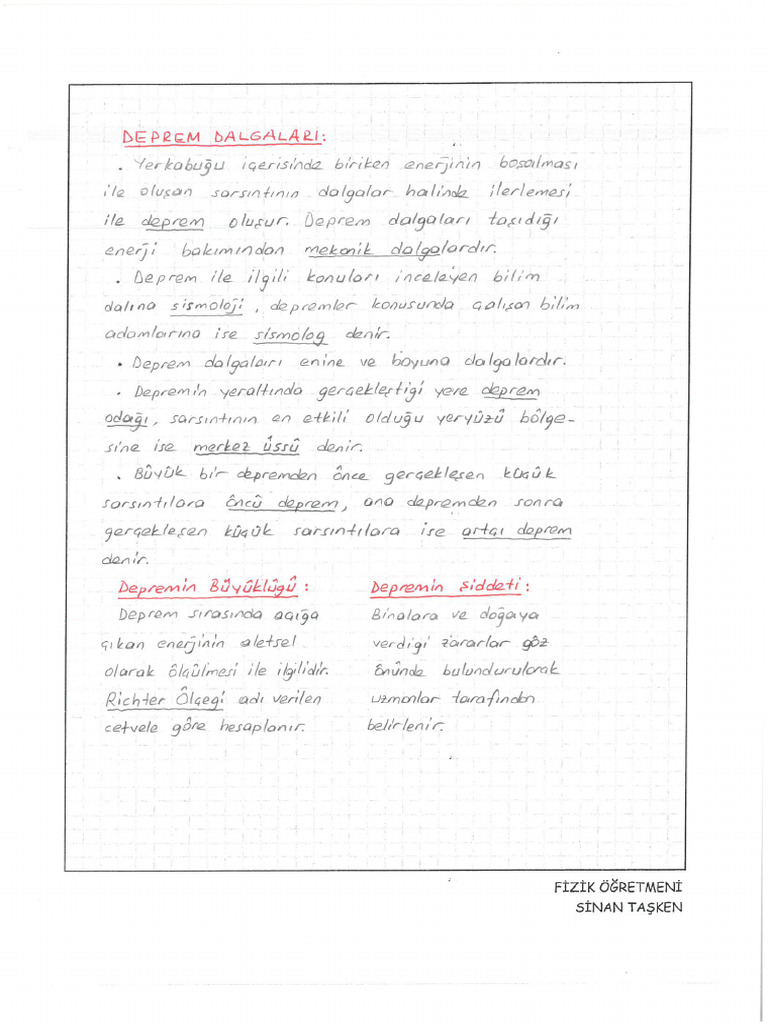 DEPREM DALGALARI:
• Yerkabuğu içerisinde biriken enerjinin boşalması
ile oluşan sarsıntının dalgalar halinde ilerlemesi
ile deprem oluşur. Deprem dalgaları taşıdığı
enerji bakımından mekanik dalgalardır.
• Deprem ile ilgili konuları inceleyen bilim
dalına sismoloji, depremler konusunda çalışan bilim
adamlarına ise sismolog denir.
• Deprem dalgaları enine ve boyuna dalgalardır.
• Depremin yeraltında gerçekleştiği yere deprem
odağı, sarsıntının en etkili olduğu yeryüzü bölge-
sine ise merkez üssü denir.
• Büyük bir depremden önce gerçekleşen küçük
sarsıntılara öncü deprem, ana depremden sonra
gerçekleşen küçük sarsıntılara ise artçı deprem
denir.
Depremin Büyüklüğü:
Deprem sırasında açığa
çıkan enerjinin aletsel
olarak ölçülmesi ile ilgilidir.
Richter Ölçeği adı verilen
cetvele göre hesaplanır.
Depremin Şiddeti:
Binalara ve doğaya
verdiği zararlar göz
önünde bulundurularak
uzmanlar tarafından
belirlenir.
FİZİK ÖĞRETMENİ
SİNAN TAŞKEN